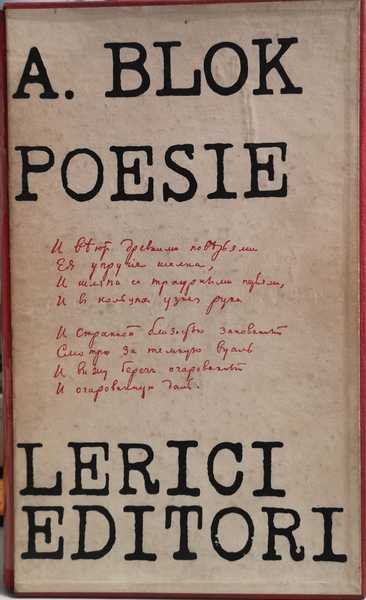 A. BLOK
POESIE
И вѣютъ древними повѣрьями
Ея упругіе шелка,
И шляпа съ траурными перьями,
И въ кольцахъ узкая рука
И странной близостью закованный
Смотрю за темную вуаль
И вижу берегъ очарованный
И очарованную даль.
LERICI
EDITORI